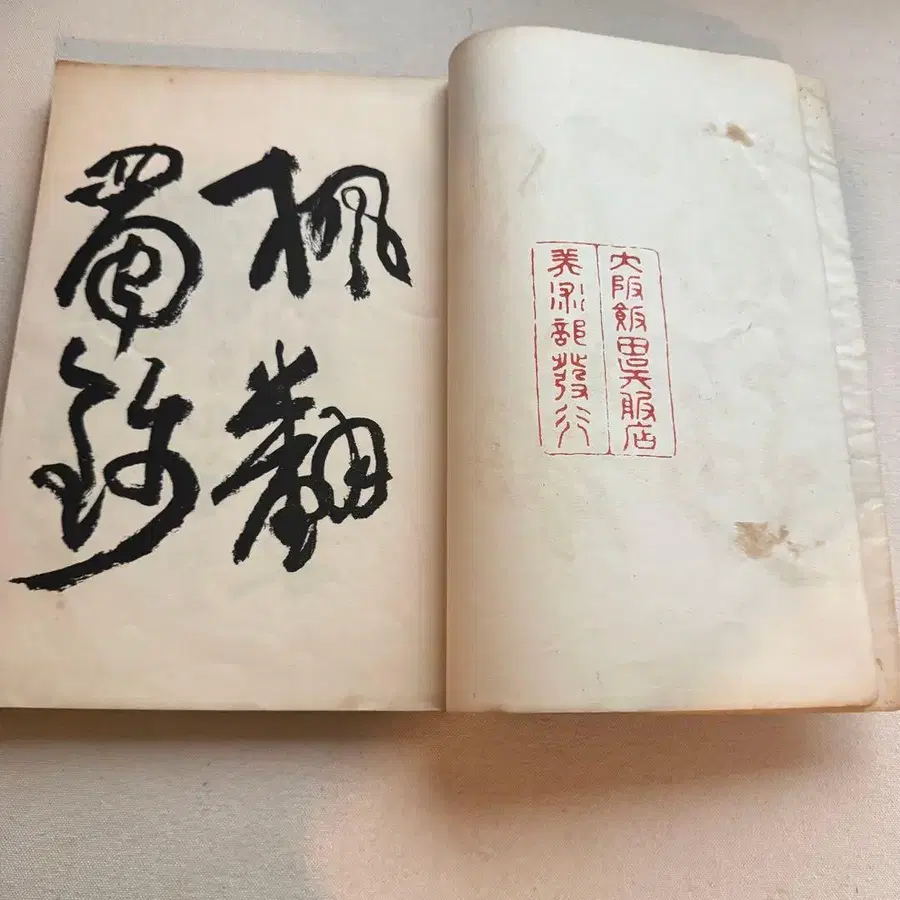 大阪飯田呉服店
美術部發行
楓翻
蜀錦